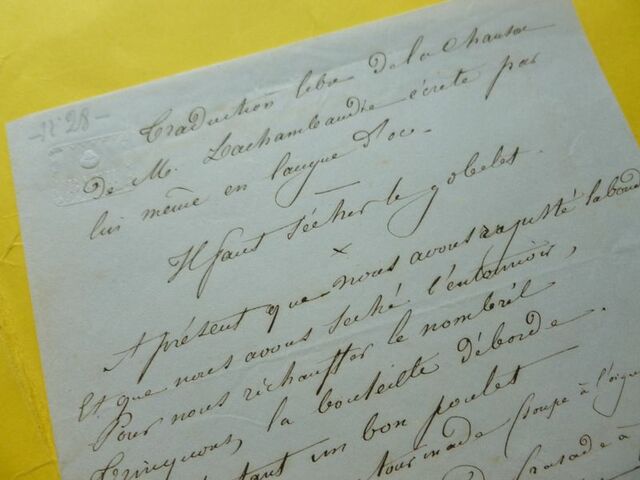 - N° 28 -
Traduction libre de la Chanson
de M. Lachambaudie écrite par
lui même en langue d'oc.
Il faut sécher le gobelet.
x
A présent que nous avons rajusté la bonde
Et que nous avons séché l'entonnoir,
Pour nous réchauffer le nombril
Trinquons, la bouteille déborde.
un bon poulet
Soupe à l'oign
à